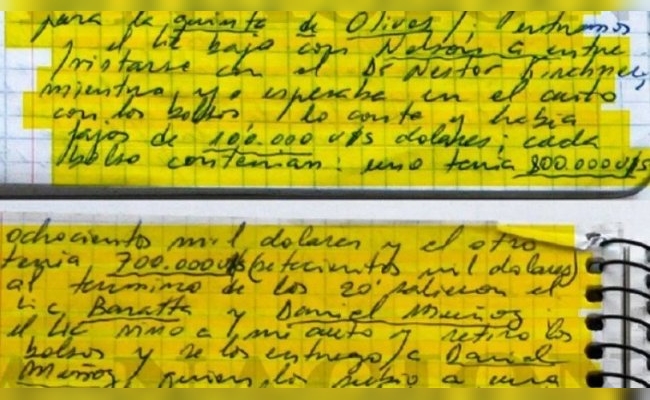 para la quinta de Olivos / entramos
y el Lic bajo con Nelson a entre
/vistarse con el Dr Nestor Kirchner,
mientras yo esperaba en el auto
con los bolsos, lo conte y había
fajos de 100.000 U$S dolares; cada
bolso contenian: uno tenia 800.000 U$S
ochocientos mil dolares y el otro
tenia 700.000 U$S (setecientos mil dolares)
al termino de los 20' salieron el
Lic Baratta y Daniel Muñoz
el Lic vino a mi auto y retiro los
bolsos y se los entrego a Daniel
Muñoz, quien los subio a una